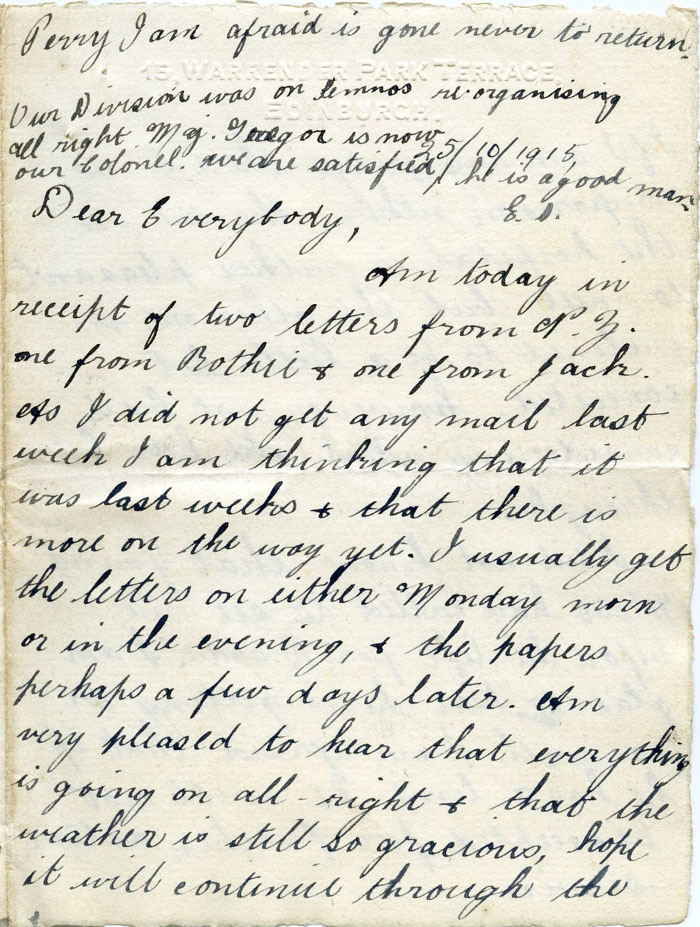 Perry I am afraid is gone never to return.
15, WARRENDER PARK TERRACE,
EDINBURGH.
Our Division was on Lemnos re-organising
all right Maj. Grigor is now
our Colonel. we are satisfied, he is a good man
E. D.
25/10/1915,
Dear Everybody,
Am today in
receipt of two letters from N. Z.
one from Rothie & one from Jack.
As I did not get any mail last
week I am thinking that it
was last weeks & that there is
more on the way yet. I usually get
the letters on either Monday morn
or in the evening, & the papers
perhaps a few days later. Am
very pleased to hear that everything
is going on all-right & that the
weather is still so gracious, hope
it will continue through the